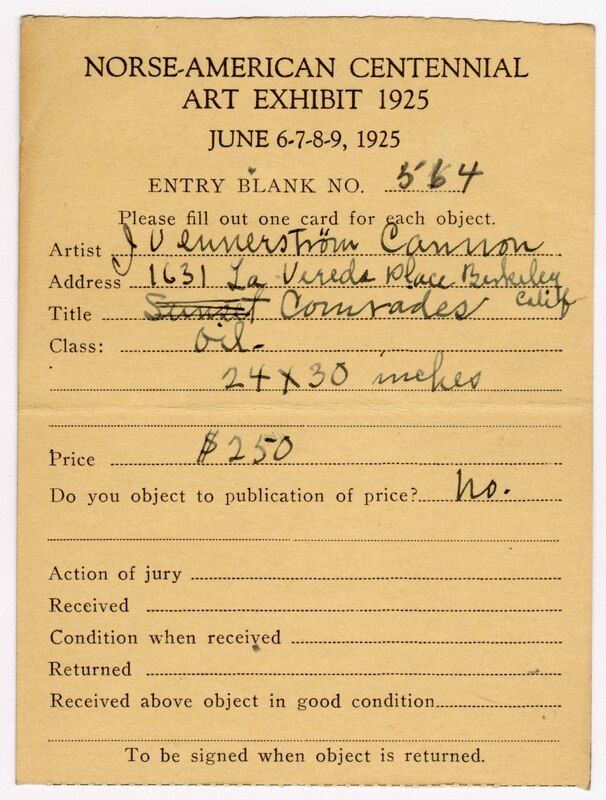 NORSE-AMERICAN CENTENNIAL
ART EXHIBIT 1925
JUNE 6-7-8-9, 1925
ENTRY BLANK NO. 564
Please fill out one card for each object.
Artist J Vennerström Cannon
Address 1631 La Vereda Place Berkeley
Calif
Title Sunset Comrades
Class: Oil.
24 x 30 inches
Price $250
Do you object to publication of price? No.
Action of jury
Received
Condition when received
Returned
Received above object in good condition
To be signed when object is returned.